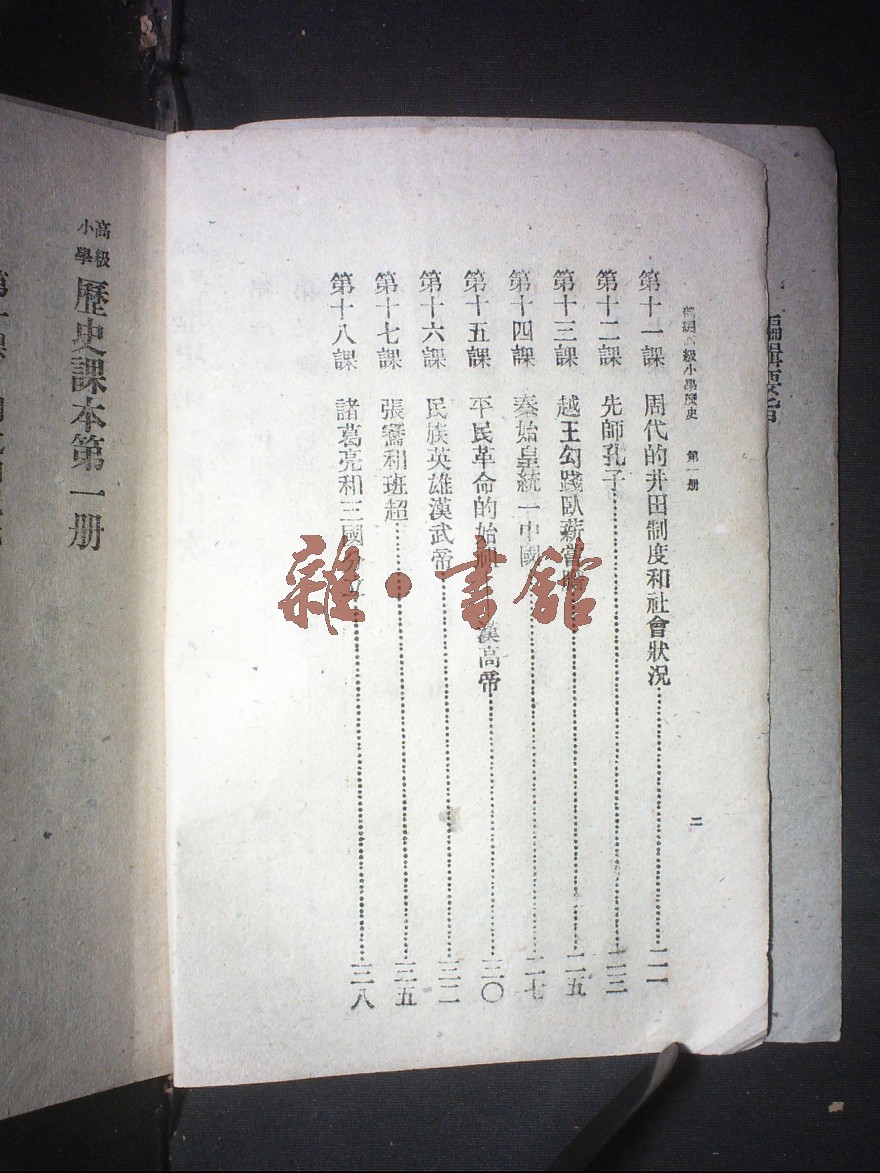 編輯要旨
新編高級小學歷史 第一册 二
第十一課 周代的井田制度和社會狀況 二一
第十二課 先師孔子 二三
第十三課 越王勾踐臥薪嘗膽 二五
第十四課 秦始皇統一中國 二七
第十五課 平民革命的始祖 漢高帝 三〇
第十六課 民族英雄漢武帝 三二
第十七課 張騫和班超 三五
第十八課 諸葛亮和三國 三八
雜·書館
高級小學 歷史課本第一册
第一課